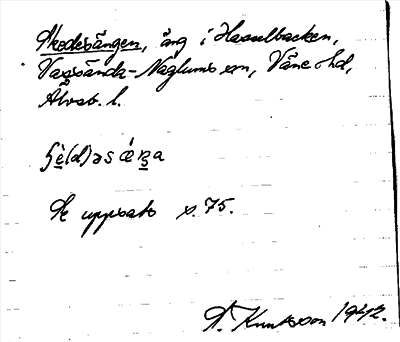 Skedesängen, äng i Hasselbacken,
Vassända-Naglums sn, Väne hd,
Älvsb. l.
Se uppsats s. 75.
A. Knutsson 1942.